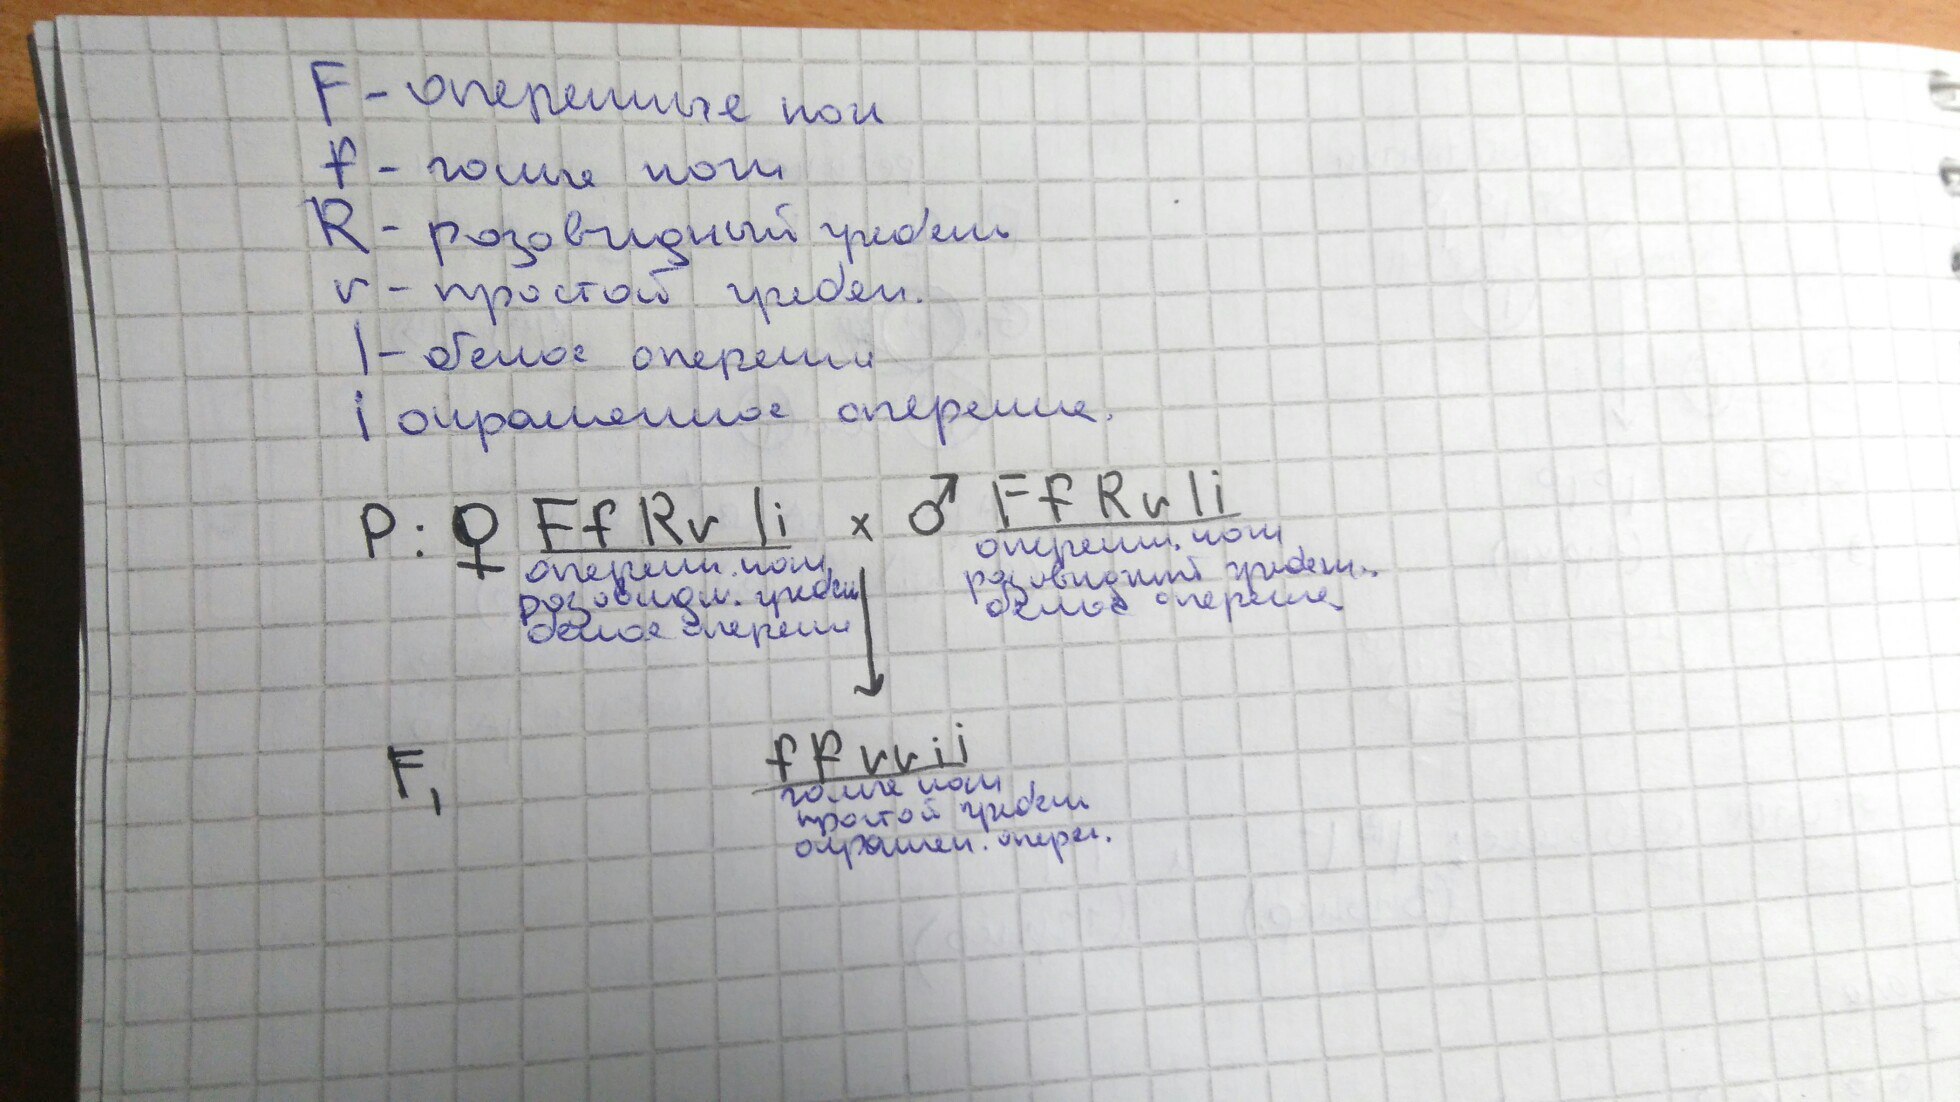 F - оперенные ноги
f - голые ноги
R - розовидный гребень
r - простой гребен.
I - белое оперени
i окрашенное оперение.
P: ♀ Ff Rr Ii × ♂ Ff Rr Ii
оперен. ноги оперенн. ноги
розовидн. гребень розовидный гребень.
белое оперени белое оперение
F1 ff rr ii
голые ноги
простой гребень
окрашен. опер.